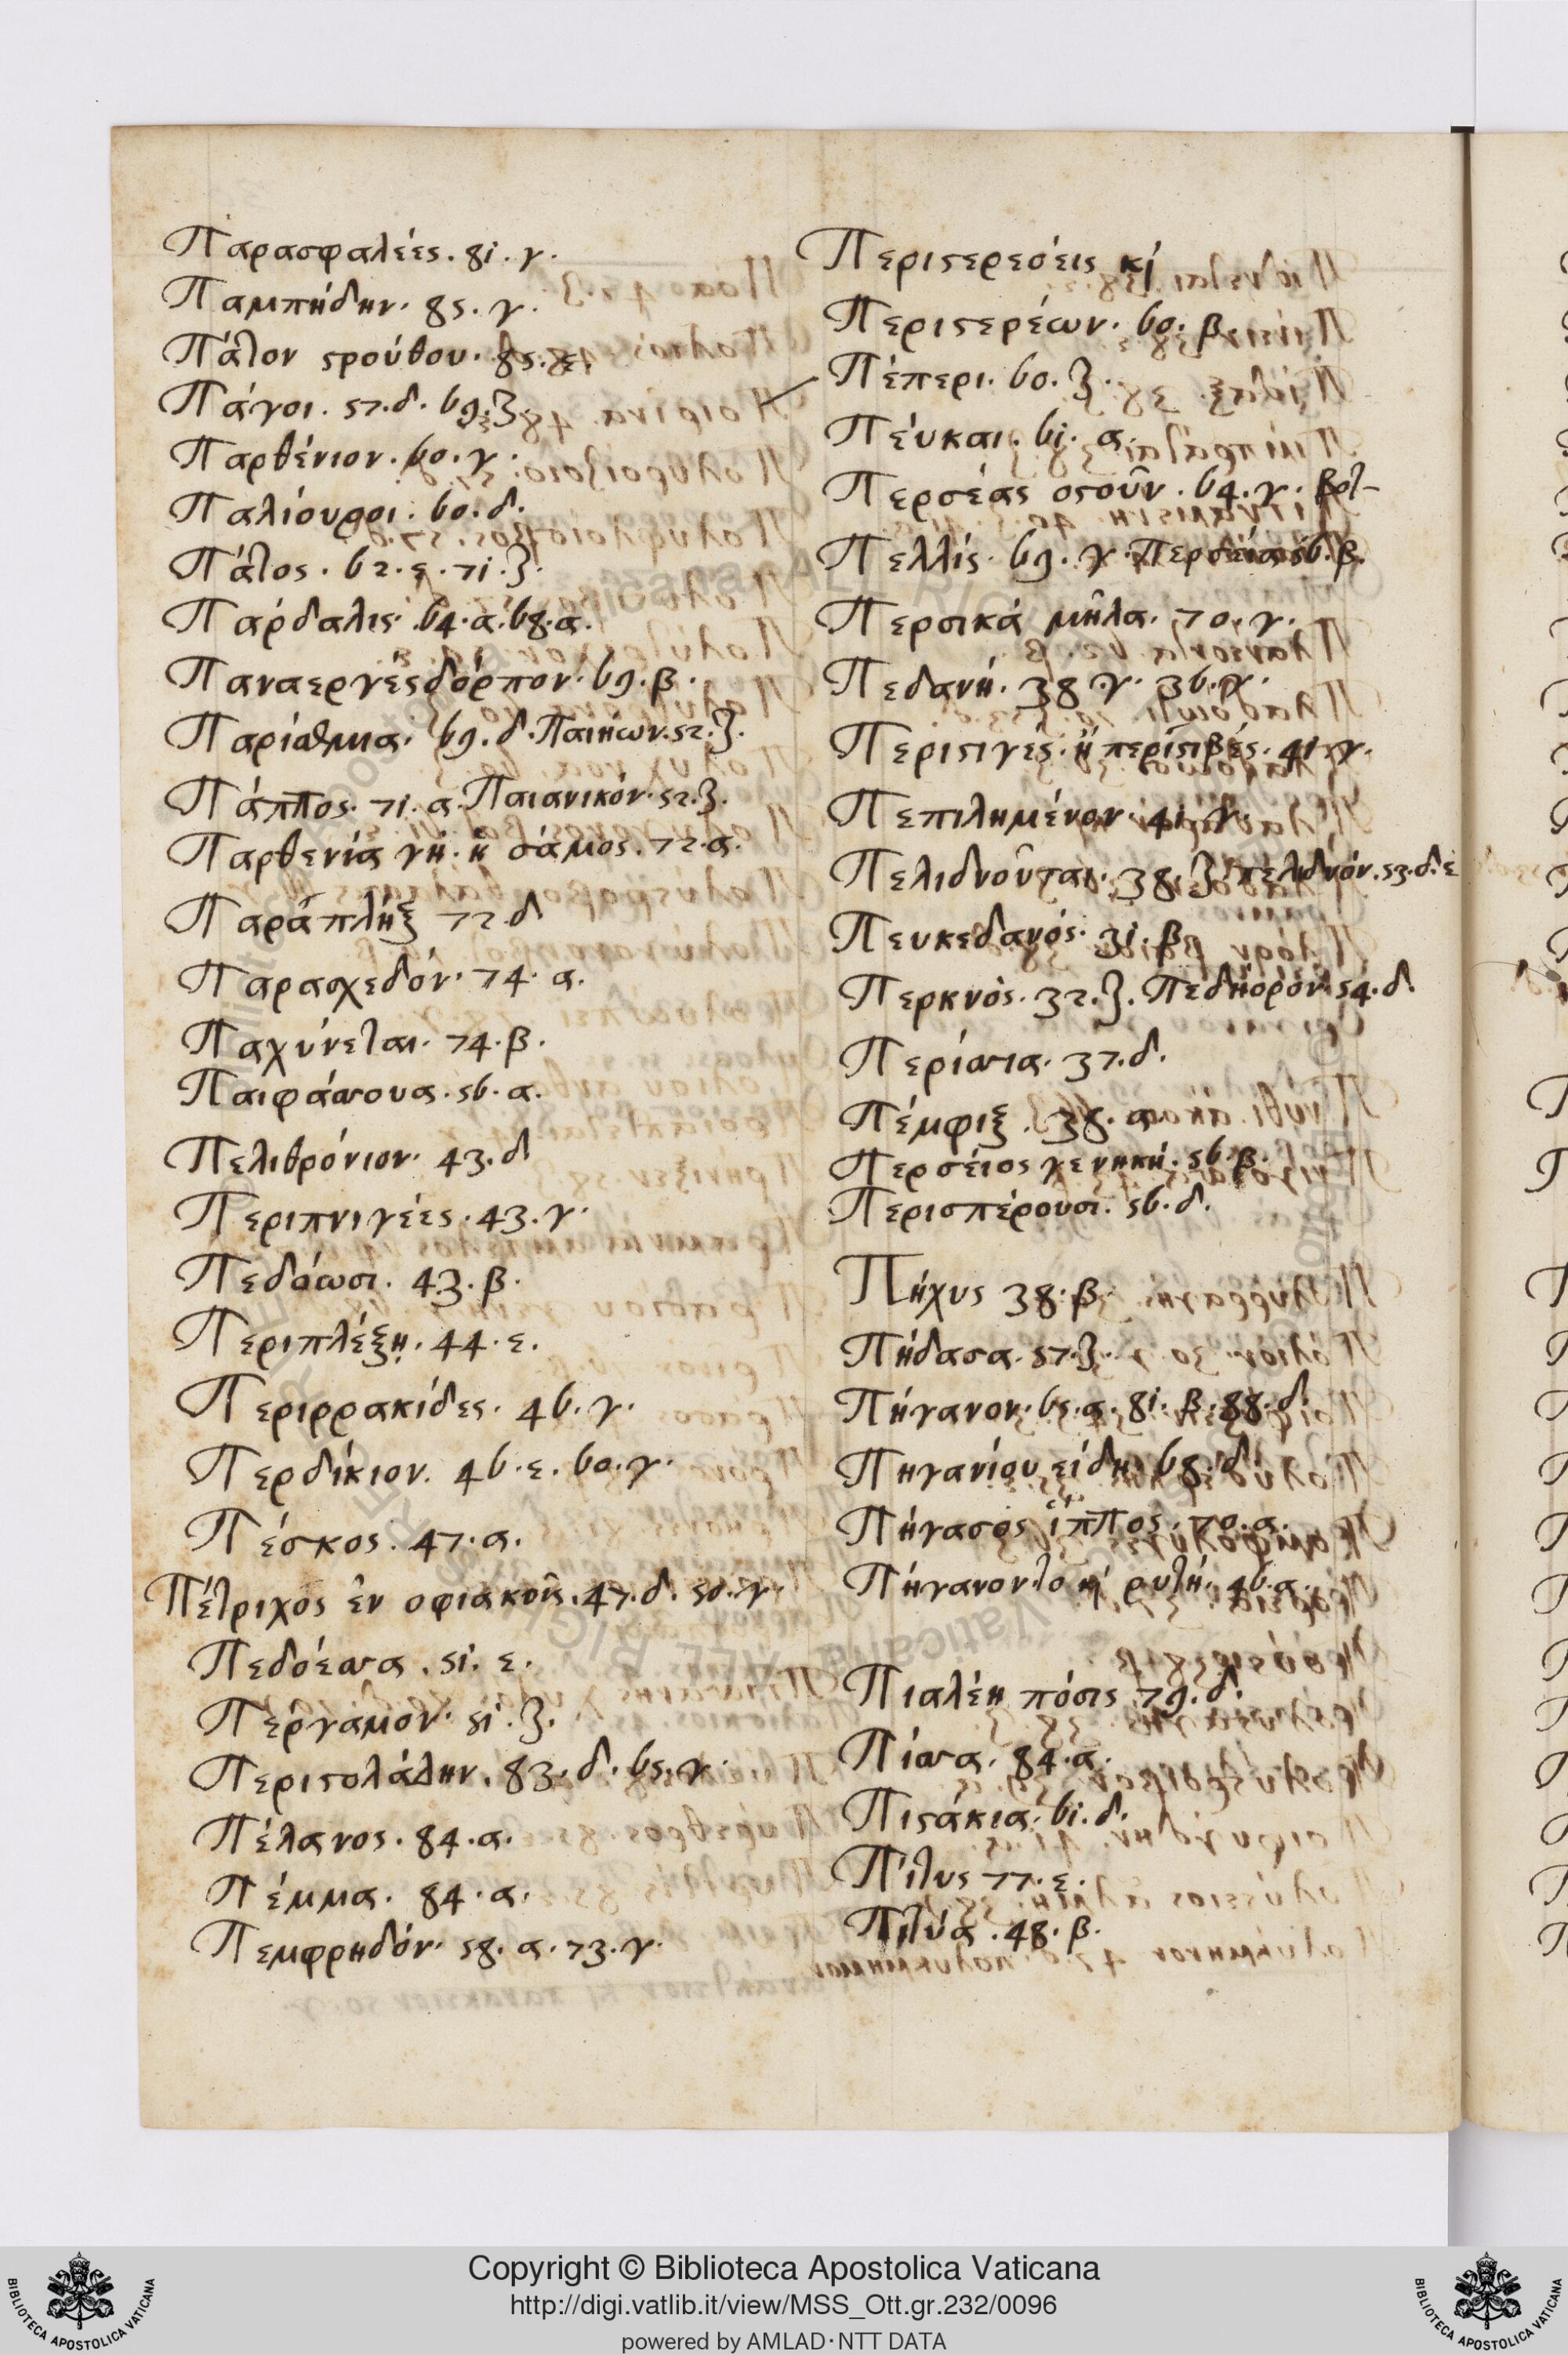 Παρασφαλέες. 81. γ.
Παμπήδην. 85. γ.
Πάτον στρούθου. 85. ε.
Πάγοι. 57. δ. 69. ζ.
Παρθένιον. 60. γ.
Παλίουροι. 60. δ.
Πάτος. 62. ε. 71. ζ.
Πάρδαλις. 64. α. 68. α.
Παναεργές δόρπον. 69. β.
Παρίσθμια. 69. δ. Παιήων. 52. ζ.
Πάππος. 71. α. Παιανικόν. 52. ζ.
Παρθενία γῆ. ἡ σάμος. 72. α.
Παράπλὴξ 72. δ
Παρασχεδόν. 74. α.
Παχύνεται. 74. β.
Παιφάσσουσα. 56. α.
Πελιθρόνιον. 43. δ
Περιπνιγέες. 43. γ.
Πεδόωσι. 43. β.
Περιπλέξῃ. 44. ε.
Περιρρακίδες. 46. γ.
Περδίκιον. 46. ε. 60. γ.
Πέσκος. 47. α.
Πέτριχος ἐν οφιακοῖς. 47. δ. 50. γ.
Πεδόεσσα. 51. ε.
Πέργαμον. 51. ζ.
Περιστολάδην. 83. δ. 65. γ.
Πέλανος. 84. α.
Πέμμα. 84. α.
Πεμφρηδόν. 58. α. 73. γ.
Περιστερεόεις κὶ
Περιστερέων. 60. β.
Πέπερι. 60. ζ.
Πεύκαι. 61. α.
Περσέας οστοῦν. 64. γ. βοτ-
Πελλίς. 69. γ. Περσείας 56. β.
Περσικά μῆλα. 70. γ.
Πεδανή. 38. γ. 36. γ.
Περιστιγές. ἢ περιστιβές. 41. γ.
Πεπιλημένον. 41. γ.
Πελιδνοῦται. 38. ζ πελιδνόν. 53. δ. ε
Πευκεδανός. 31. β.
Περκνός. 32. ζ. Πεδήορον. 54. δ.
Περίσσια. 37. δ.
Πέμφιξ. 38. α
Περσείος γενηκή. 56. β.
Περισπέρουσι. 56. δ.
Πήχυς 38. β.
Πήδασα. 57. ζ.
Πήγανον. 65. α. 81. β. 88. δ.
Πηγανίου είδη. 68. δ.
Πήγασος ἵππος. 70. α.
Πήγανον το κὶ ρυτή. 46. α.
Πιαλέη πόσις 79. δ.
Πίσσα. 84. α.
Πιστάκια. 61. δ.
Πίτυς 77. ε.
Πιτύα. 48. β.
Copyright © Biblioteca Apostolica Vaticana
http://digi.vatlib.it/view/MSS_Ott.gr.232/0096
powered by AMLAD·NTT DATA
BIBLIOTECA APOSTOLICA VATICANA
BIBLIOTECA APOSTOLICA VATICANA